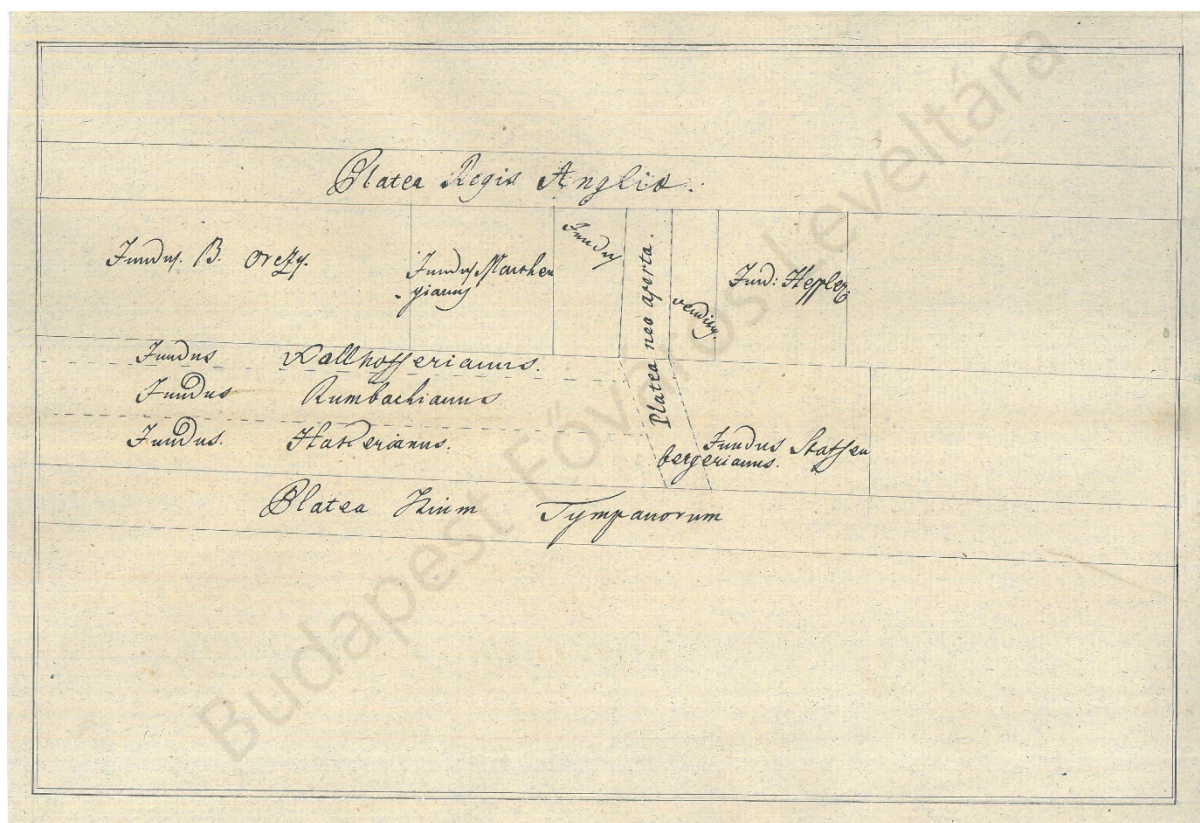 Platea Regis Angliæ.
Fundus. B. Orczy.
Fundus Marchen
gianus
Fundus
venditus.
Platea neo aperta.
Fund: Heppler
Fundus Kallhofferianus.
Fundus Rumbachianus
Fundus. Hakerianus.
Fundus
bergerianus.
Platea Trium Tympanorum
Budapest Főváros Levéltára